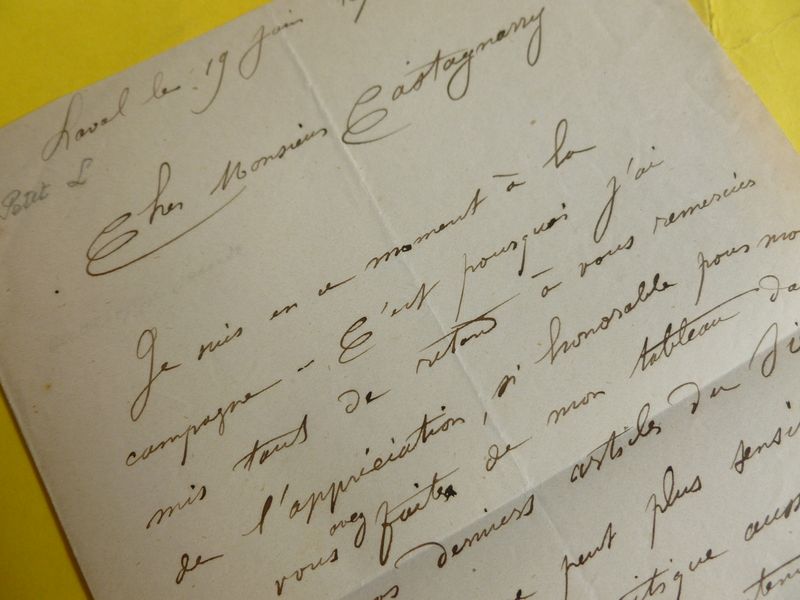 Laval le 19 Juin
Petit L
Cher Monsieur Castagnary
Je suis en ce moment à la
campagne - C'est pourquoi j'ai
mis tant de retard à vous remercier
de l'appréciation, si honorable pour mo
vous avez faite de mon tableau da
os derniers articles du Si
peut plus sensi
itique auss